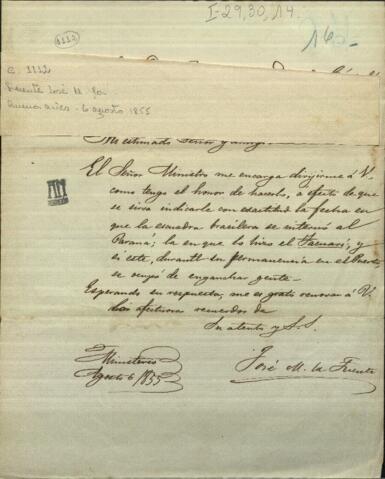 I-29,30,14.
1112
16-
C. 1112
Fuente José M. la
Buenos Aires - 6 agosto 1855
Mi estimado Señor y amigo
El Señor Ministro me encarga dirijirme á V.
como tengo el honor de hacerlo, a efecto de que
se sirva indicarle con exactitud la fecha en
que la escuadra brasilera se internó al
Paraná; la en que lo hizo el
si este, durante su permanencia en el Puerto
se ocupó de enganchar gente.
Esperando su respuesta, me es grato renovar á V.
los afectuosos recuerdos de
Su atento y S.S.
Ministerio
Agosto 6/855
José M. la Fuente